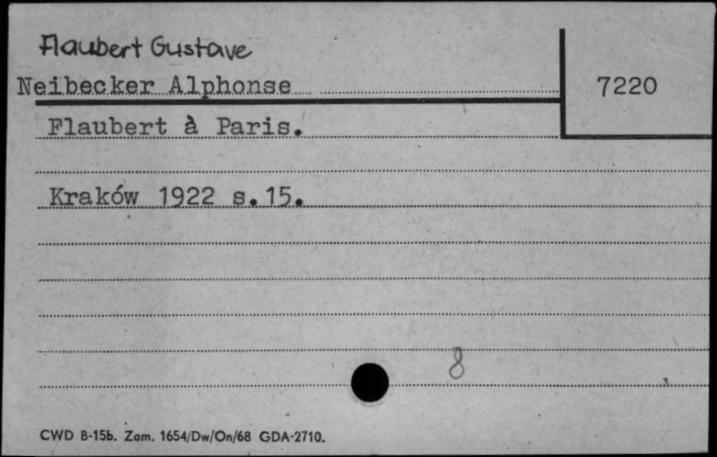 Flaubert Gustave
Neibecker Alphonse
7220
Flaubert à Paris.
Kraków 1922 s.15.
8
CWD B-15b. Zam. 1654/Dw/On/68 GDA-2710.